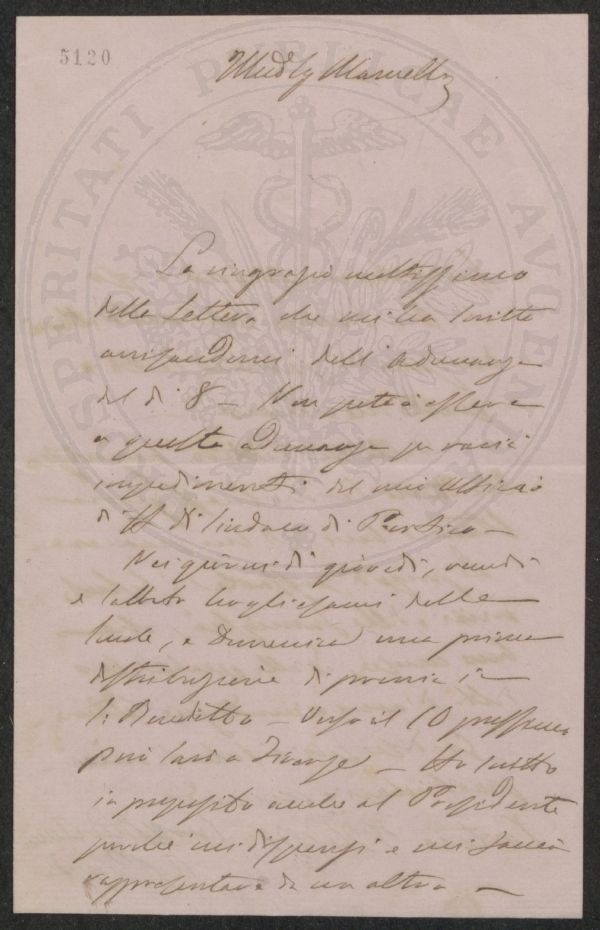 5120
PROSPERITATI PUBLICAE AUGENDAE
La ringrazio moltissimo
della Lettera che mi ha scritto
dell'Adunanza
del dì 8 — Non potei essere
a questa Adunanza per varii
impedimenti del mio Ufficio
di ff di Sindaco di
Nei giorni di giovedì, venerdì
e sabato delle
Scuole, e Domenica una prima
distribuzione di premi in
S. Benedetto — Verso il 10 prossimo
poi sarò a Firenze — Ho scritto
in proposito anche al Presidente
perché mi dispensi e mi faccia
rappresentare da un altro —